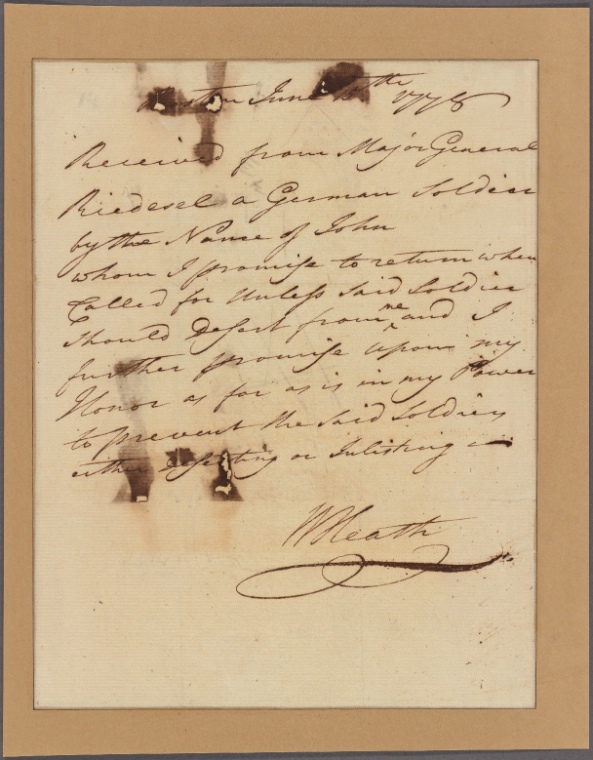 Boston June 10th 1778
Received from Major General
Riedesel a German Soldier
by the Name of John
whom I promise to return when
Called for Unless Said Soldier
Should Desert from me and I
further promise upon my
Honor as far as is in my Power
to prevent the Said Soldiers
either Deserting or Inlisting
W Heath